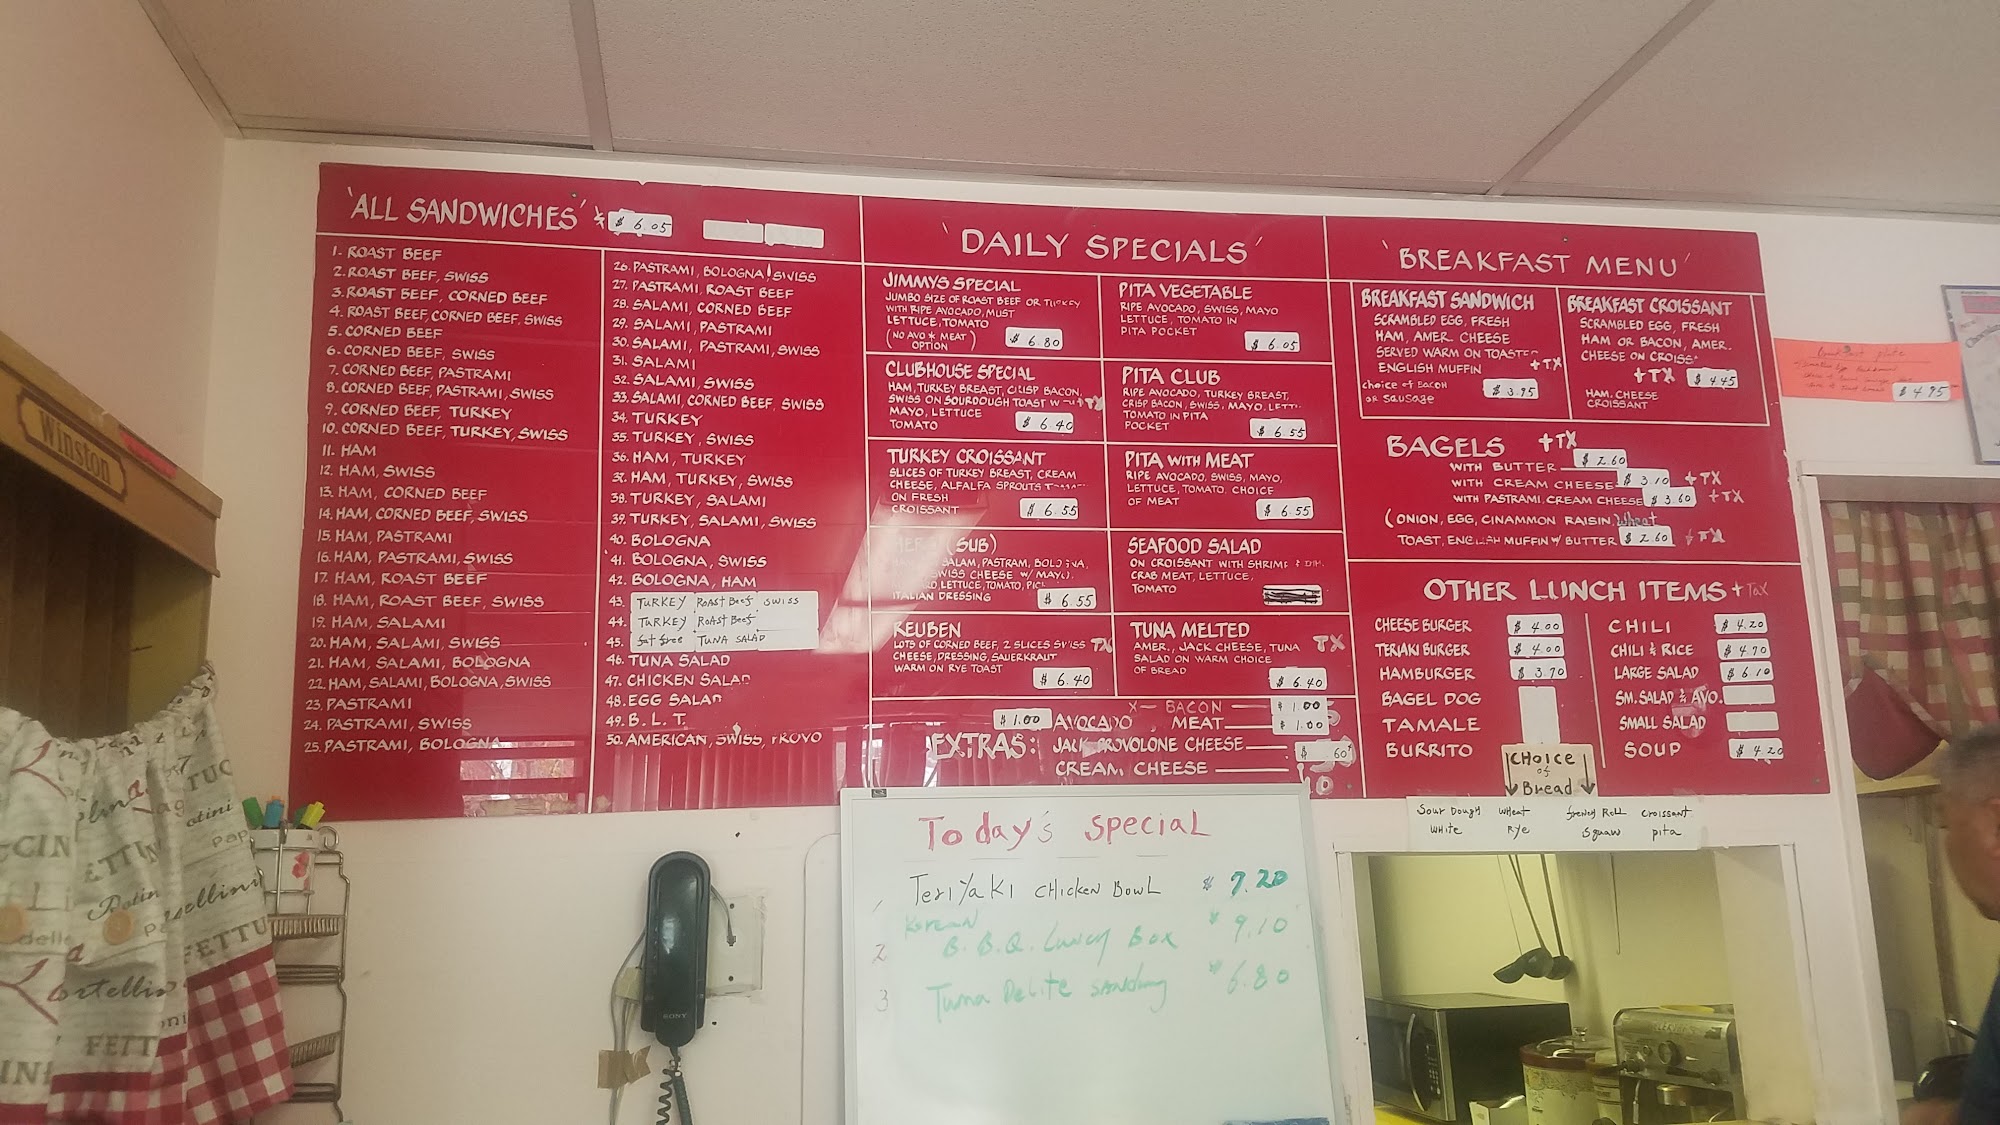 'ALL SANDWICHES' $ 6.05
1. ROAST BEEF
2. ROAST BEEF, SWISS
3. ROAST BEEF, CORNED BEEF
4. ROAST BEEF, CORNED BEEF, SWISS
5. CORNED BEEF
6. CORNED BEEF, SWISS
7. CORNED BEEF, PASTRAMI
8. CORNED BEEF, PASTRAMI, SWISS
9. CORNED BEEF, TURKEY
10. CORNED BEEF, TURKEY, SWISS
11. HAM
12. HAM, SWISS
13. HAM, CORNED BEEF
14. HAM, CORNED BEEF, SWISS
15. HAM, PASTRAMI
16. HAM, PASTRAMI, SWISS
17. HAM, ROAST BEEF
18. HAM, ROAST BEEF, SWISS
19. HAM, SALAMI
20. HAM, SALAMI, SWISS
21. HAM, SALAMI, BOLOGNA
22. HAM, SALAMI, BOLOGNA, SWISS
23. PASTRAMI
24. PASTRAMI, SWISS
25. PASTRAMI, BOLOGNA
26. PASTRAMI, BOLOGNA, SWISS
27. PASTRAMI, ROAST BEEF
28. SALAMI, CORNED BEEF
29. SALAMI, PASTRAMI
30. SALAMI, PASTRAMI, SWISS
31. SALAMI
32. SALAMI, SWISS
33. SALAMI, CORNED BEEF, SWISS
34. TURKEY
35. TURKEY, SWISS
36. HAM, TURKEY
37. HAM, TURKEY, SWISS
38. TURKEY, SALAMI
39. TURKEY, SALAMI, SWISS
40. BOLOGNA
41. BOLOGNA, SWISS
42. BOLOGNA, HAM
43. TURKEY ROAST BEEF SWISS
44. TURKEY ROAST BEEF
45. fat free TUNA SALAD
46. TUNA SALAD
47. CHICKEN SALAD
48. EGG SALAD
49. B. L. T.
50. AMERICAN, SWISS, PROVO
'DAILY SPECIALS'
JIMMYS SPECIAL
JUMBO SIZE OF ROAST BEEF OR TURKEY
WITH RIPE AVOCADO, MUST
LETTUCE, TOMATO
(NO AVO * MEAT OPTION)
$ 6.80
CLUBHOUSE SPECIAL
HAM, TURKEY BREAST, CRISP BACON,
SWISS ON SOURDOUGH TOAST WITH TX
MAYO, LETTUCE
TOMATO
$ 6.40
TURKEY CROISSANT
SLICES OF TURKEY BREAST, CREAM
CHEESE, ALFALFA SPROUTS
ON FRESH
CROISSANT
$ 6.55
(SUB)
SALAM, PASTRAM, BOLOGNA,
SWISS CHEESE W/ MAYO,
LETTUCE, TOMATO,
ITALIAN DRESSING
$ 6.55
REUBEN
LOTS OF CORNED BEEF, 2 SLICES SWISS TX
CHEESE, DRESSING, SAUERKRAUT
WARM ON RYE TOAST
$ 6.40
PITA VEGETABLE
RIPE AVOCADO, SWISS, MAYO
LETTUCE, TOMATO IN
PITA POCKET
$ 6.05
PITA CLUB
RIPE AVOCADO, TURKEY BREAST,
CRISP BACON, SWISS, MAYO, LETT
TOMATO IN PITA
POCKET
$ 6.55
PITA WITH MEAT
RIPE AVOCADO, SWISS, MAYO,
LETTUCE, TOMATO. CHOICE
OF MEAT
$ 6.55
SEAFOOD SALAD
ON CROISSANT WITH SHRIMP
CRAB MEAT, LETTUCE,
TOMATO
TUNA MELTED TX
AMER., JACK CHEESE, TUNA
SALAD ON WARM CHOICE
OF BREAD
$ 6.40
EXTRAS:
X- BACON $ 1.00
$1.00 AVOCADO MEAT $ 1.00
JACK PROVOLONE CHEESE $ 60¢
CREAM CHEESE
'BREAKFAST MENU'
BREAKFAST SANDWICH
SCRAMBLED EGG, FRESH
HAM, AMER. CHEESE
SERVED WARM ON TOASTED
ENGLISH MUFFIN +TX
choice of Bacon
or sausage
$ 3.95
BREAKFAST CROISSANT
SCRAMBLED EGG, FRESH
HAM OR BACON, AMER.
CHEESE ON CROISS
+TX $ 4.45
HAM, CHEESE
CROISSANT
$ 4.95
BAGELS +TX
WITH BUTTER $ 2.60
WITH CREAM CHEESE $ 3.10 +TX
WITH PASTRAMI, CREAM CHEESE $ 3.60 +TX
(ONION, EGG, CINAMMON RAISIN, Wheat
TOAST, ENGLISH MUFFIN W/ BUTTER $ 2.60 +TX
OTHER LUNCH ITEMS + Tax
CHEESE BURGER $ 4.00
TERIAKI BURGER $ 4.00
HAMBURGER $ 3.70
BAGEL DOG
TAMALE
BURRITO
CHILI $ 4.20
CHILI & RICE $ 4.70
LARGE SALAD $ 6.10
SM. SALAD & AVO.
SMALL SALAD
SOUP $ 4.20
CHOICE
of
Bread
Sour Dough wheat french Roll croissant
white Rye squaw pita
Winston
Today's Special
1 Teriyaki chicken Bowl $ 7.20
2 Korean B.B.Q. Lunch Box $ 9.10
3 Tuna Delite Sandwig $ 6.80
SONY